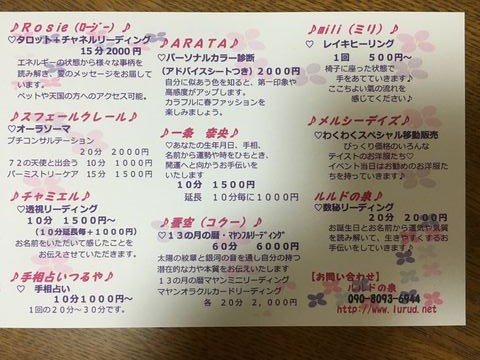 ♪Rosie(ﾛｰｼﾞｰ)♪
♡タロット+チャネルリーディング
15分2000円
エネルギーの状態から様々な事柄を
読み解き、愛のメッセージをお届して
います。
ペットや天国の方へのアクセス可能。
♪スフェールゥレール♪
♡オーラソーマ
プチコンサルテーション
20分 2000円
72の天使と出会う 10分 1000円
パーミストリーケア 15分 1500円
♪チャミエル♪
♡透視リーディング
10分 1500円～
(10分延長毎+1000円)
お名前をいただいて感じたことを
お伝えさせていただきます。
♪手相占いつるや♪
♡ 手相占い
10分1000円～
1回の20～30分です。
♪ARATA♪
♡パーソナルカラー診断
(アドバイスシートつき)2000円
自分に似あう色を知ると、第一印象や
高感度がアップします。
カラフルに春ファッションを
楽しみましょう。
♪一条 奈央♪
♡あなたの生年月日、手相、
名前から運勢や時をひもとき、
開運へと向かうお手伝いを
いたします
10分 1500円
延長 10分毎に1000円
♪雲空(コクー)♪
♡13の月の暦・ﾏﾔﾝﾌﾙﾘｰﾃﾞｨﾝｸﾞ
60分 6000円
太陽の紋章と銀河の音を通し自分の持つ
潜在的な力や本質をお伝えいたします
13の月の暦マヤンミニリーディング
マヤンオラクルカードリーディング
各20分 2,000円
♪mili(ミリ)♪
♡ レイキヒーリング
1回 500円～
椅子に座った状態で
手をあてていきます♪
ここちよい氣の流れを
感じてください♪
♪メルシーデイズ♪
♡わくわくスペシャル移動販売
びっくり価格のいろんな
テイストのお洋服たち♡
イベント当日はお勧めのお洋服た
ちを持っていきます。
♪ルルドの泉♪
♡数秘リーディング
20分 2000円
お誕生日とお名前から運氣や気質
を読み解いて、生きやすくするお
手伝いをしています。
【お問い合わせ】
ルルドの泉
090-8093-6944
http://www.lurud.net